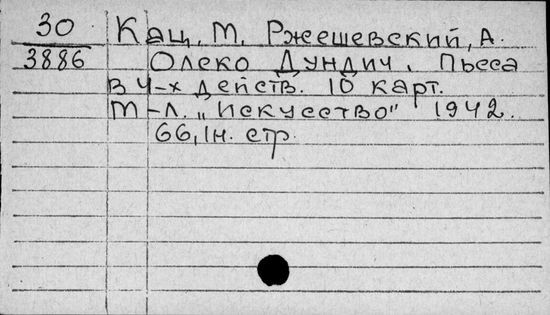 30 Кац, М. Ржешевский, А.
3886 Олеко Дундич. Пьеса
в 4-х действ. 10 карт.
М-Л. „Искусство" 1942.
66, 1н. стр.